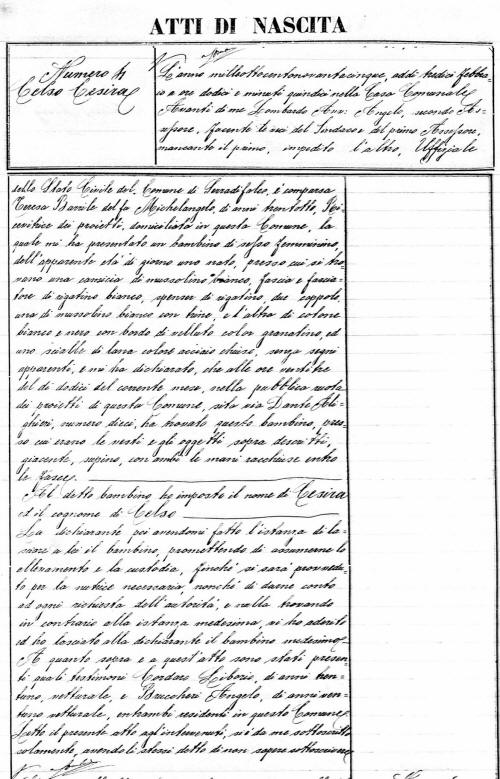 ATTI DI NASCITA
Numero 4
Celso Cesira
L'anno milleottocentonovantacinque, addì tredici febbra=
io a ore dodici e minuti quindici nella Casa Comunale
Avanti di me Lombardo Avv: Angelo, secondo As=
sessore, facente le veci del Sindaco e del primo Assessore,
mancante il primo, impedito l'altro, Uffiziale
dello Stato Civile del Comune di Serradifalco, è comparsa
Teresa Barrile del fu Michelangelo, di anni trentotto, Ri=
cevitrice dei proietti, domiciliata in questo Comune, la
quale mi ha presentato un bambino di sesso femminino,
dell'apparente età di giorno uno nato, presso cui si tro=
vano una camicia di mussolino bianco, fascia e fascia=
tore di rigatino bianco, spenser di rigatino, due cappole,
una di mussolino bianco con trine, e l'altra di cotone
bianco e nero con bordo di velluto color granatino, ed
uno scialle di lana colore acciaio chiuso, senza segni
apparenti, e mi ha dichiarato, che alle ore ventitre
del dì dodici del corrente mese, nella pubblica ruota
dei proietti di questo Comune, sita via Dante Ali=
ghieri, numero dieci, ha trovato questo bambino, pres=
so cui erano le vesti e gli oggetti sopra descritti,
giacente, supino, con ambi le mani racchiuse entro
le fasce.
Al detto bambino ho imposto il nome di Cesira
ed il cognome di Celso
La dichiarante poi avendomi fatto l'istanza di la=
sciare a lei il bambino, promettendo di assumerne lo
allevamento e la custodia, finchè si sarà provvedu=
to per la nutrice necessaria nonchè di darne conto
ad ogni richiesta dell'autorità, e nulla trovando
in contrario alla istanza medesima, vi ho aderito
ed ho lasciato alla dichiarante il bambino medesimo
A quanto sopra e a quest'atto sono stati presen=
ti quali testimoni Cordaro Liborio, di anni tren=
tuno, vetturale, e Bruccheri Angelo, di anni ven=
tuno vetturale, entrambi residenti in questo Comune
Letto il presente atto agl'intervenuti, si è da me sottoscritto
solamente, avendo li stessi detto di non sapere sottoscrivere